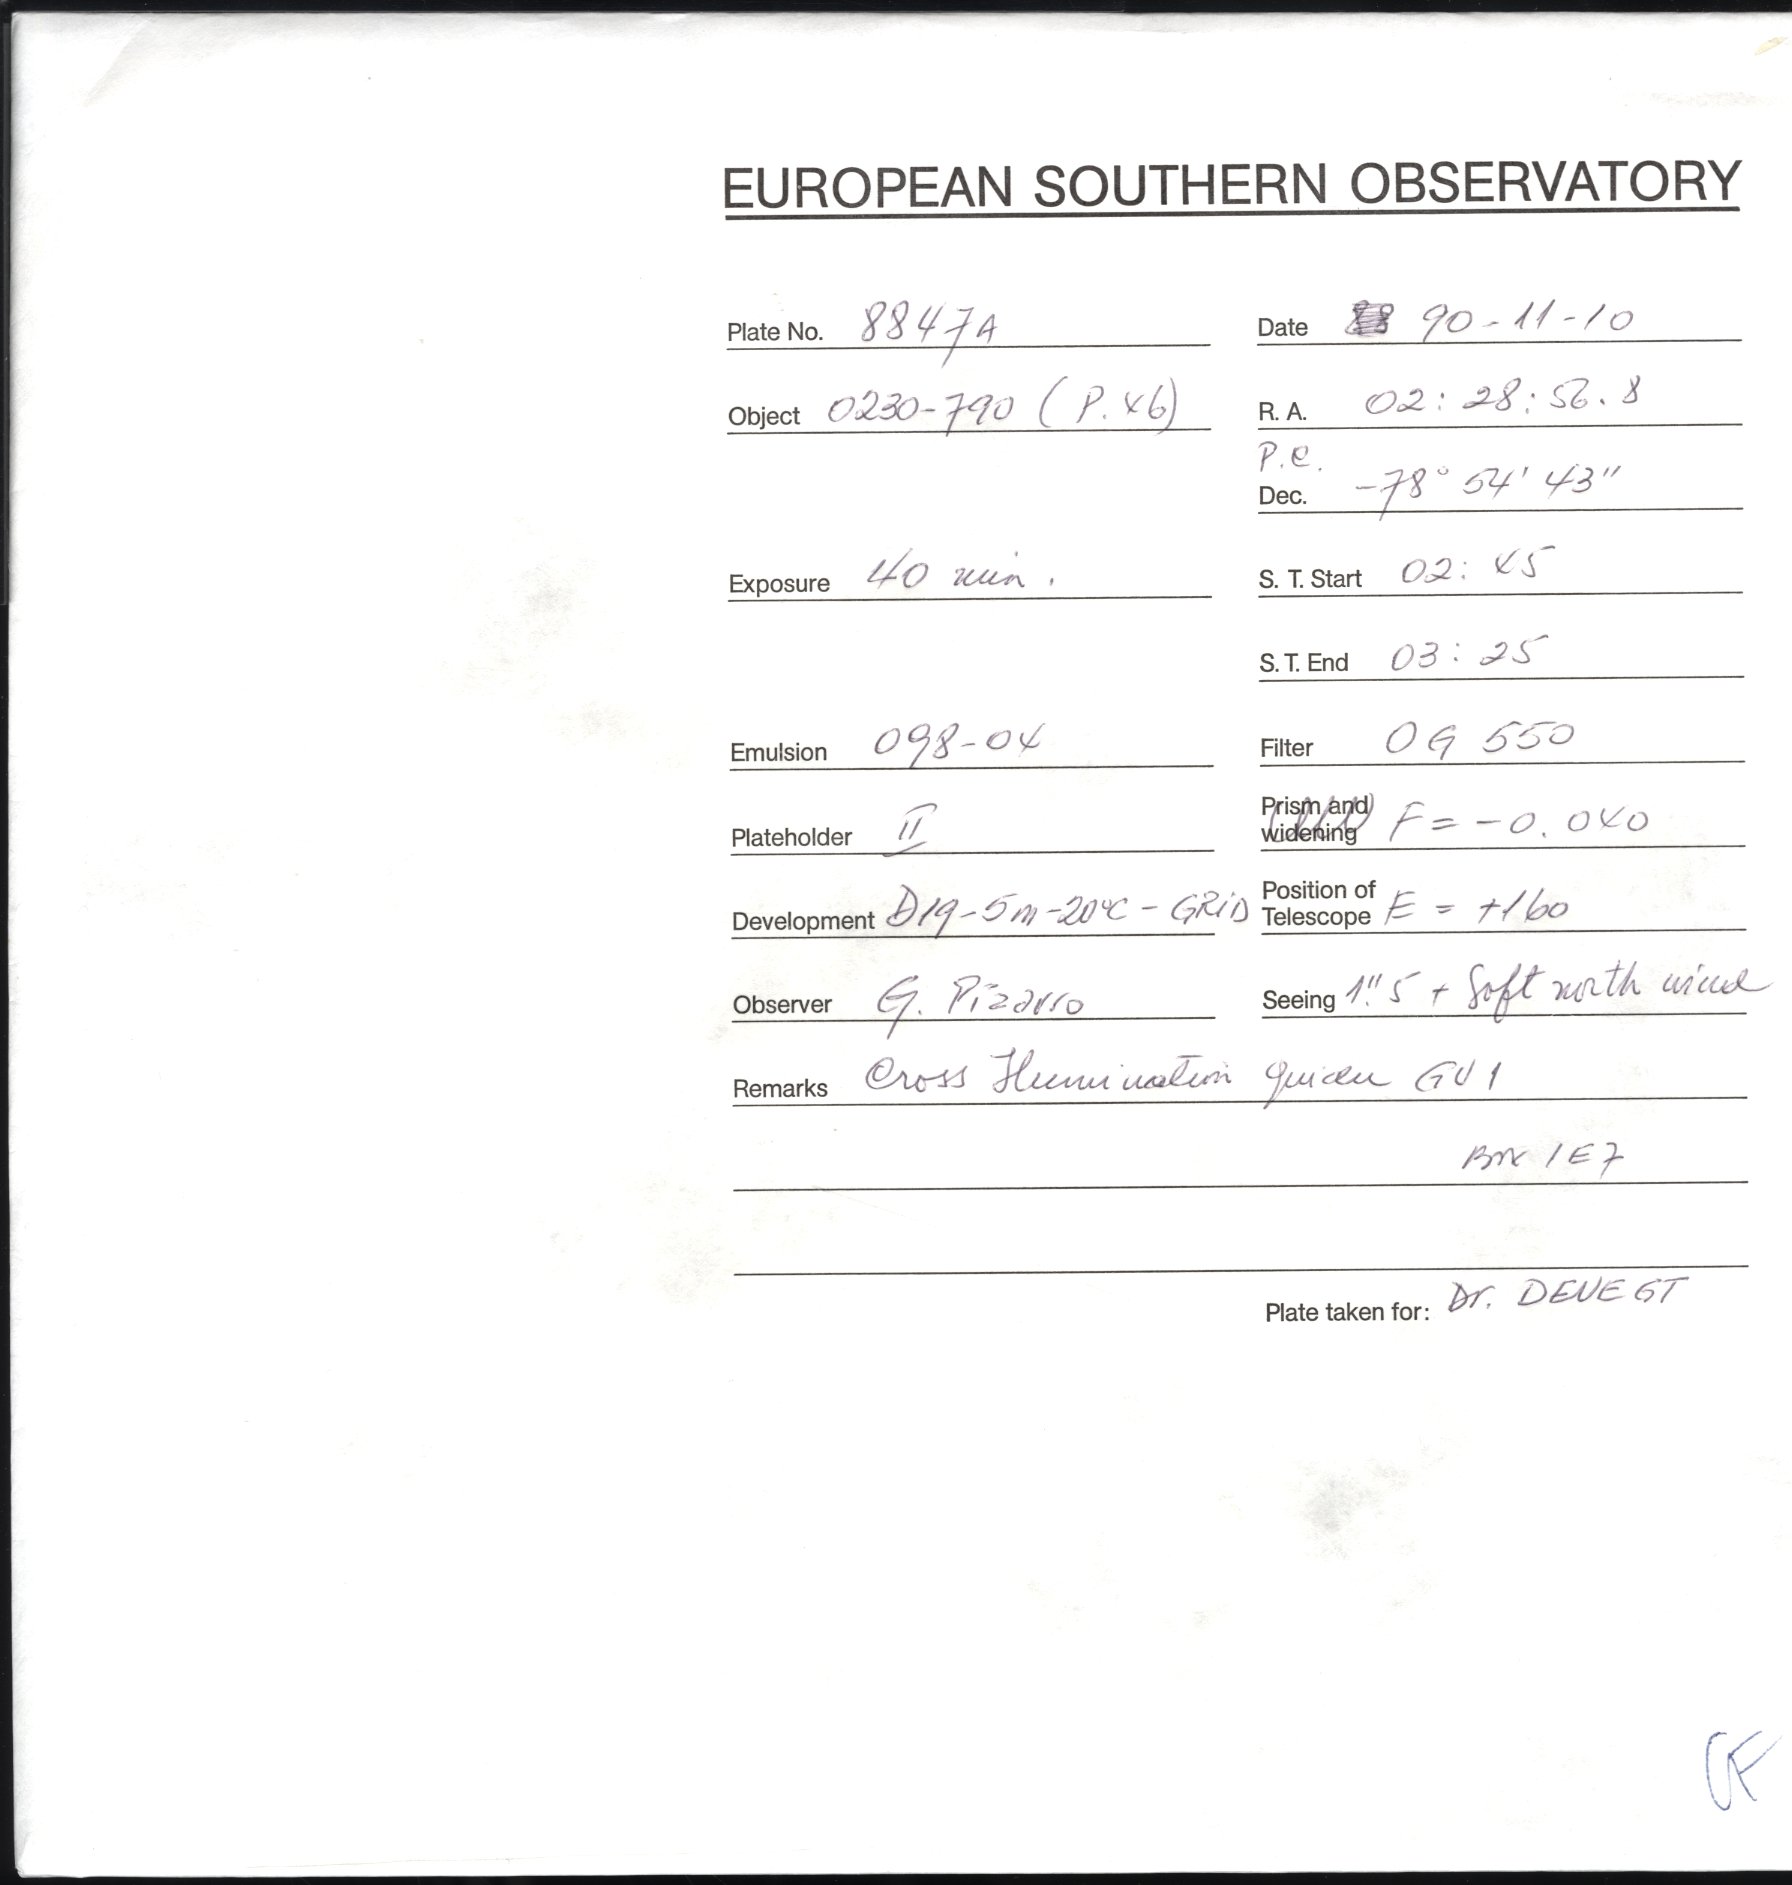 EUROPEAN SOUTHERN OBSERVATORY
Plate No. 8847A Date 90-11-10
Object 0230-790 (P. 46) R. A. 02: 28: 56. 8
P.e.
Dec. -78° 54' 43"
Exposure 40 min. S. T. Start 02: 45
S. T. End 03: 25
Emulsion 098-04 Filter OG 550
Plateholder II Prism and widening F = -0.040
Development D19-5m-20°C - GRiD Position of Telescope E = +160
Observer G. Pizarro Seeing 1".5 + Soft north wind
Remarks Cross Illumination GU1
Box 1E7
Plate taken for: Dr. DEVEGT